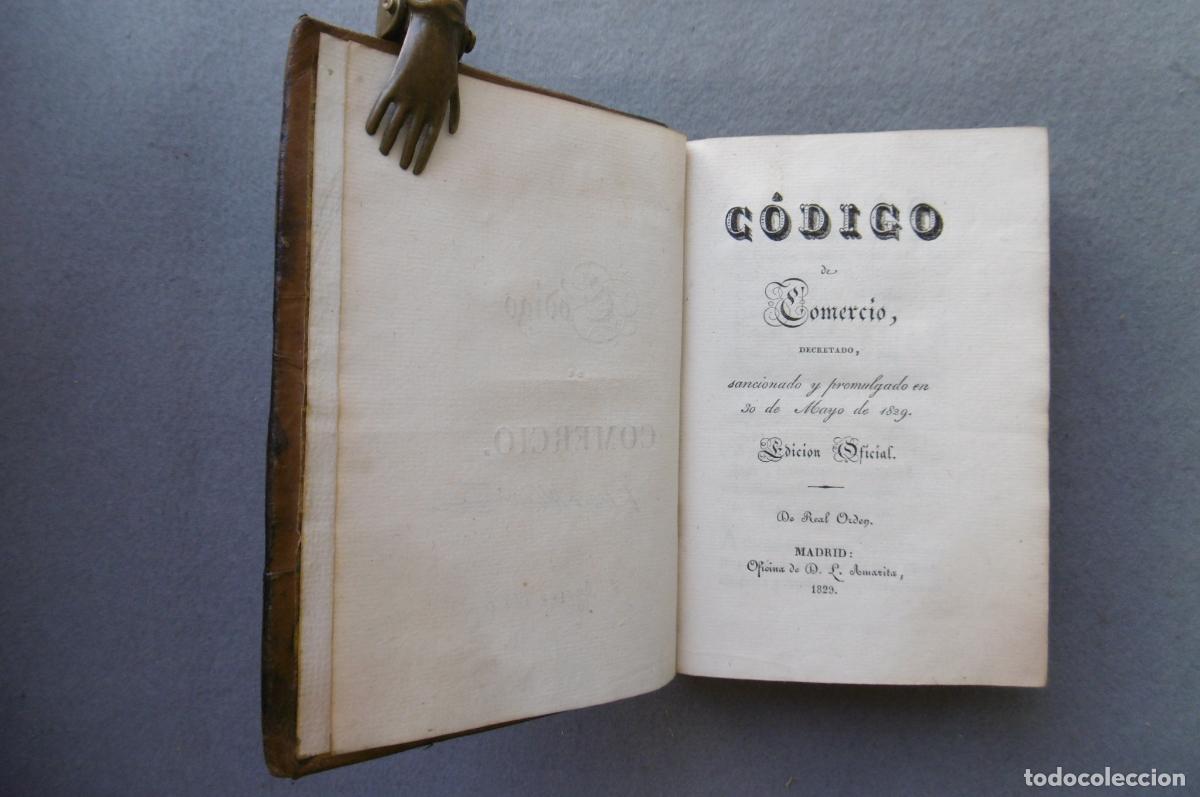 Código
de
COMERCIO.
CÓDIGO
de
Comercio,
DECRETADO,
sancionado y promulgado en
30 de Mayo de 1829.
Edicion Oficial.
De Real Orden.
MADRID:
Oficina de D. L. Amarita,
1829.
todocoleccion